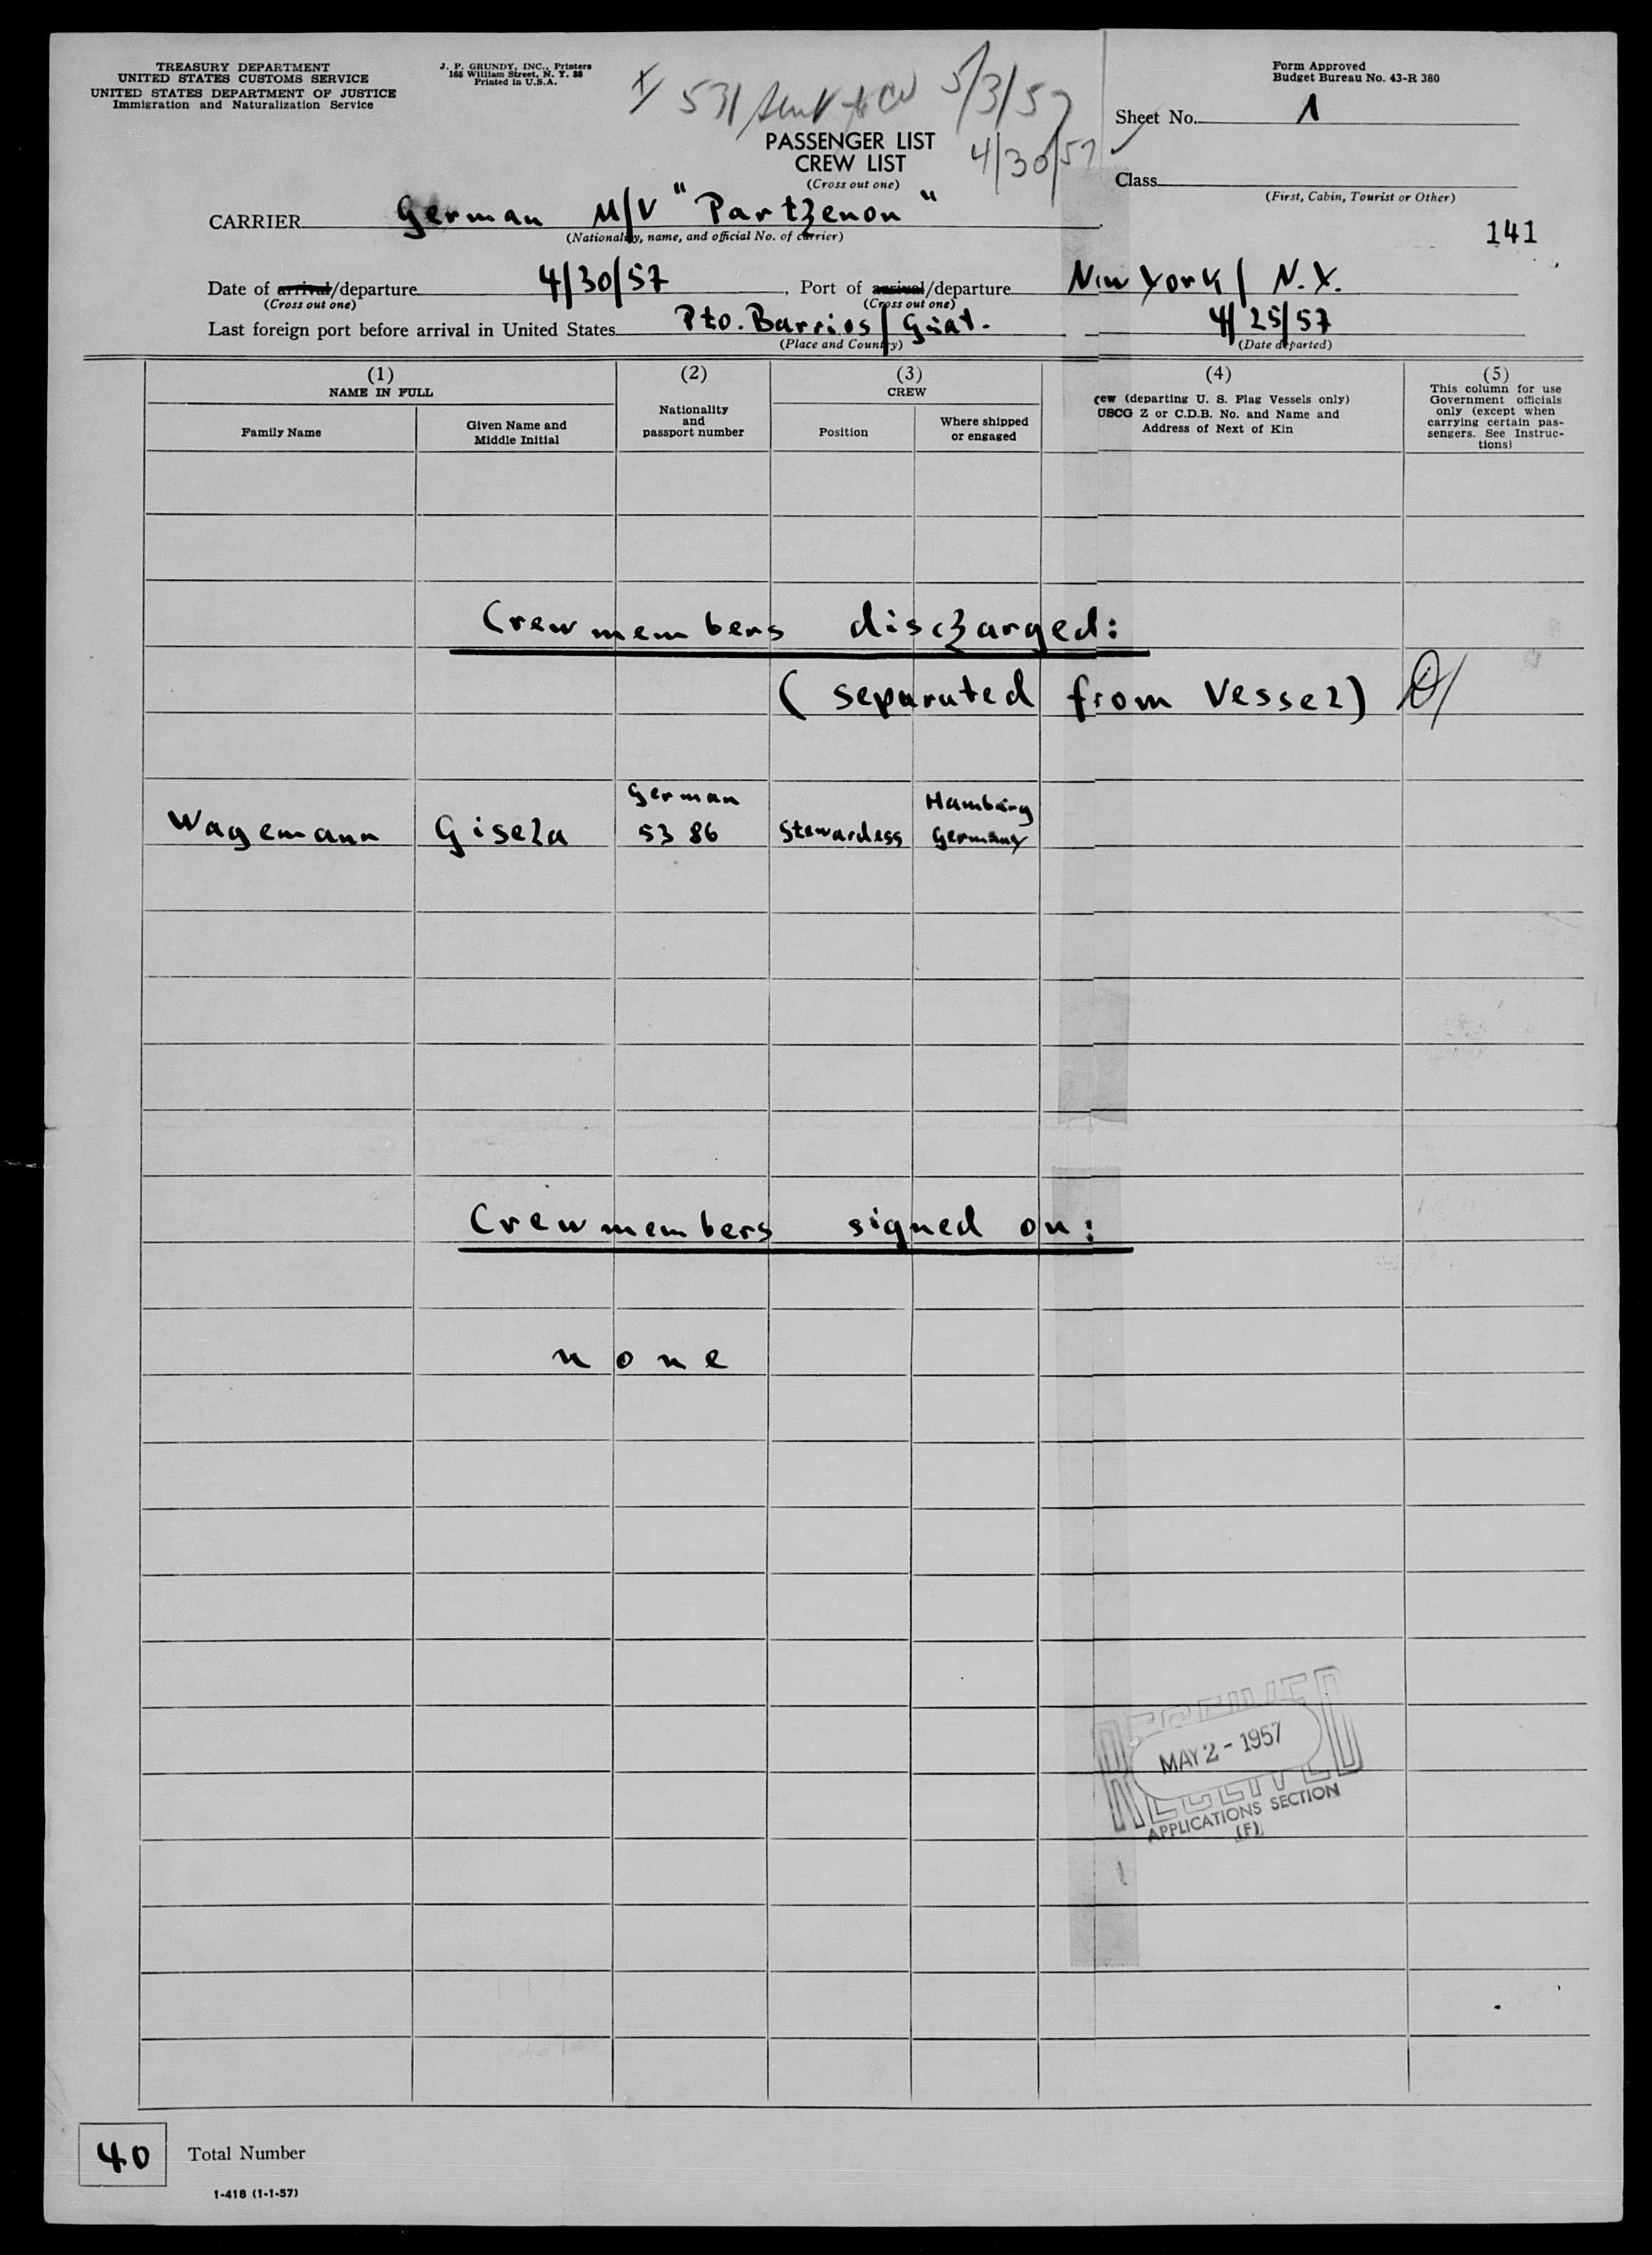 TREASURY DEPARTMENT
UNITED STATES CUSTOMS SERVICE
UNITED STATES DEPARTMENT OF JUSTICE
Immigration and Naturalization Service
J. P. GRUNDY, INC., Printers
165 William Street, N. Y. 38
Printed in U.S.A.
Form Approved
Budget Bureau No. 43-R 380
531 5/3/57
4/30/57
Sheet No. 1
PASSENGER LIST
CREW LIST
(Cross out one)
Class
(First, Cabin, Tourist or Other)
CARRIER German M/V "Parthenon"
(Nationality, name, and official No. of carrier)
141
Date of arrival/departure 4/30/57, Port of arrival/departure New York / N.Y.
(Cross out one) (Cross out one)
Last foreign port before arrival in United States Pto. Barrios / Guat. 4/25/57
(Place and Country) (Date departed)
(1) (2) (3) (4) (5)
NAME IN FULL
Family Name
Given Name and
Middle Initial
Nationality
and
passport number
CREW
Position
Where shipped
or engaged
(departing U. S. Flag Vessels only)
USCG Z or C.D.B. No. and Name and
Address of Next of Kin
This column for use
Government officials
only (except when
carrying certain pas-
sengers. See Instruc-
tions)
Crewmembers discharged:
(separated from Vessel)
German Hamburg
Wagemann Gisela 5386 Stewardess Germany
Crewmembers signed on:
none
RECEIVED
MAY 2 - 1957
RECEIVED
APPLICATIONS SECTION
(F)
40 Total Number
I-418 (1-1-57)